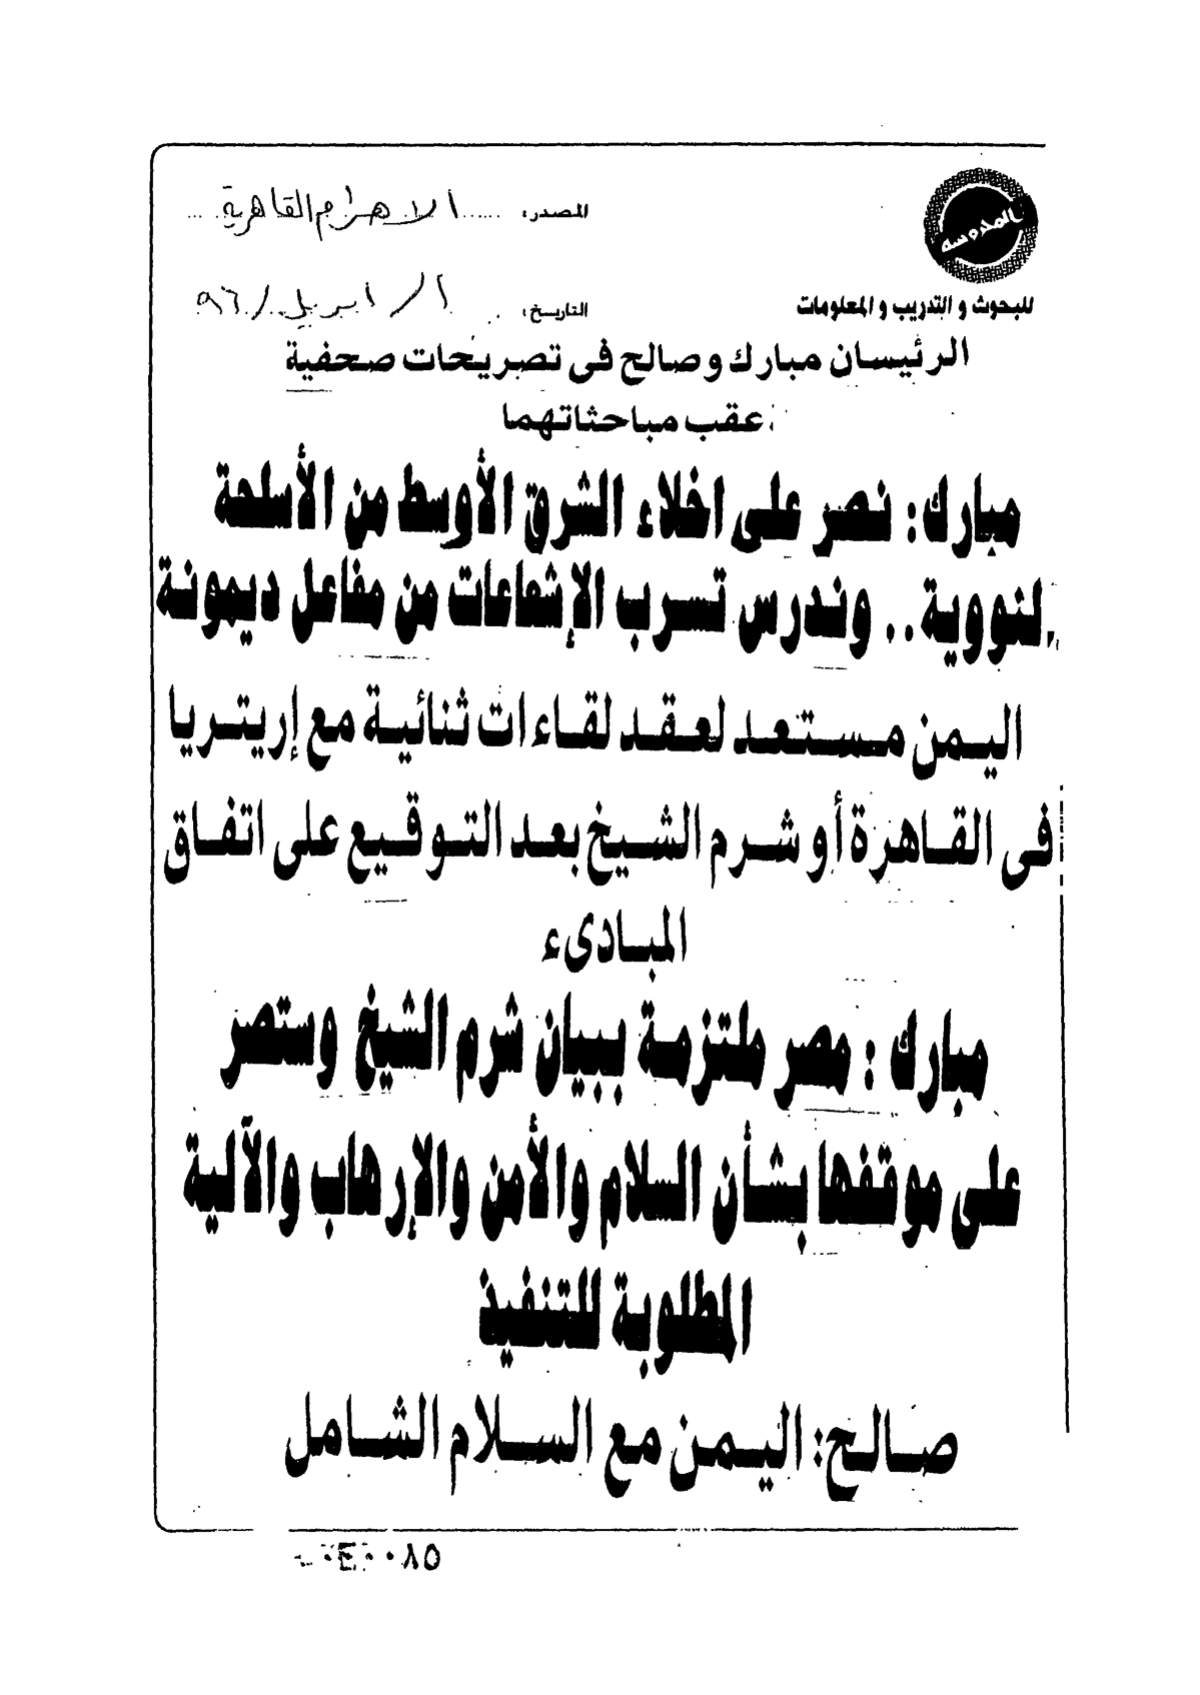 المصدر: الاهرام القاهرية
المحروسة
التاريخ: ١ / ابريل / ٩٦
للبحوث و التدريب و المعلومات
الرئيسان مبارك وصالح فى تصريحات صحفية
عقب مباحثاتهما
مبارك: نصر على اخلاء الشرق الأوسط من الأسلحة
لنووية.. وندرس تسرب الإشعاعات من مفاعل ديمونة
اليمن مستعد لعقد لقاءات ثنائية مع إريتريا
فى القاهرة أو شرم الشيخ بعد التوقيع على اتفاق
المبادىء
مبارك : مصر ملتزمة ببيان شرم الشيخ وستصر
على موقفها بشأن السلام والأمن والإرهاب والآلية
المطلوبة للتنفيذ
صالح: اليمن مع السلام الشامل